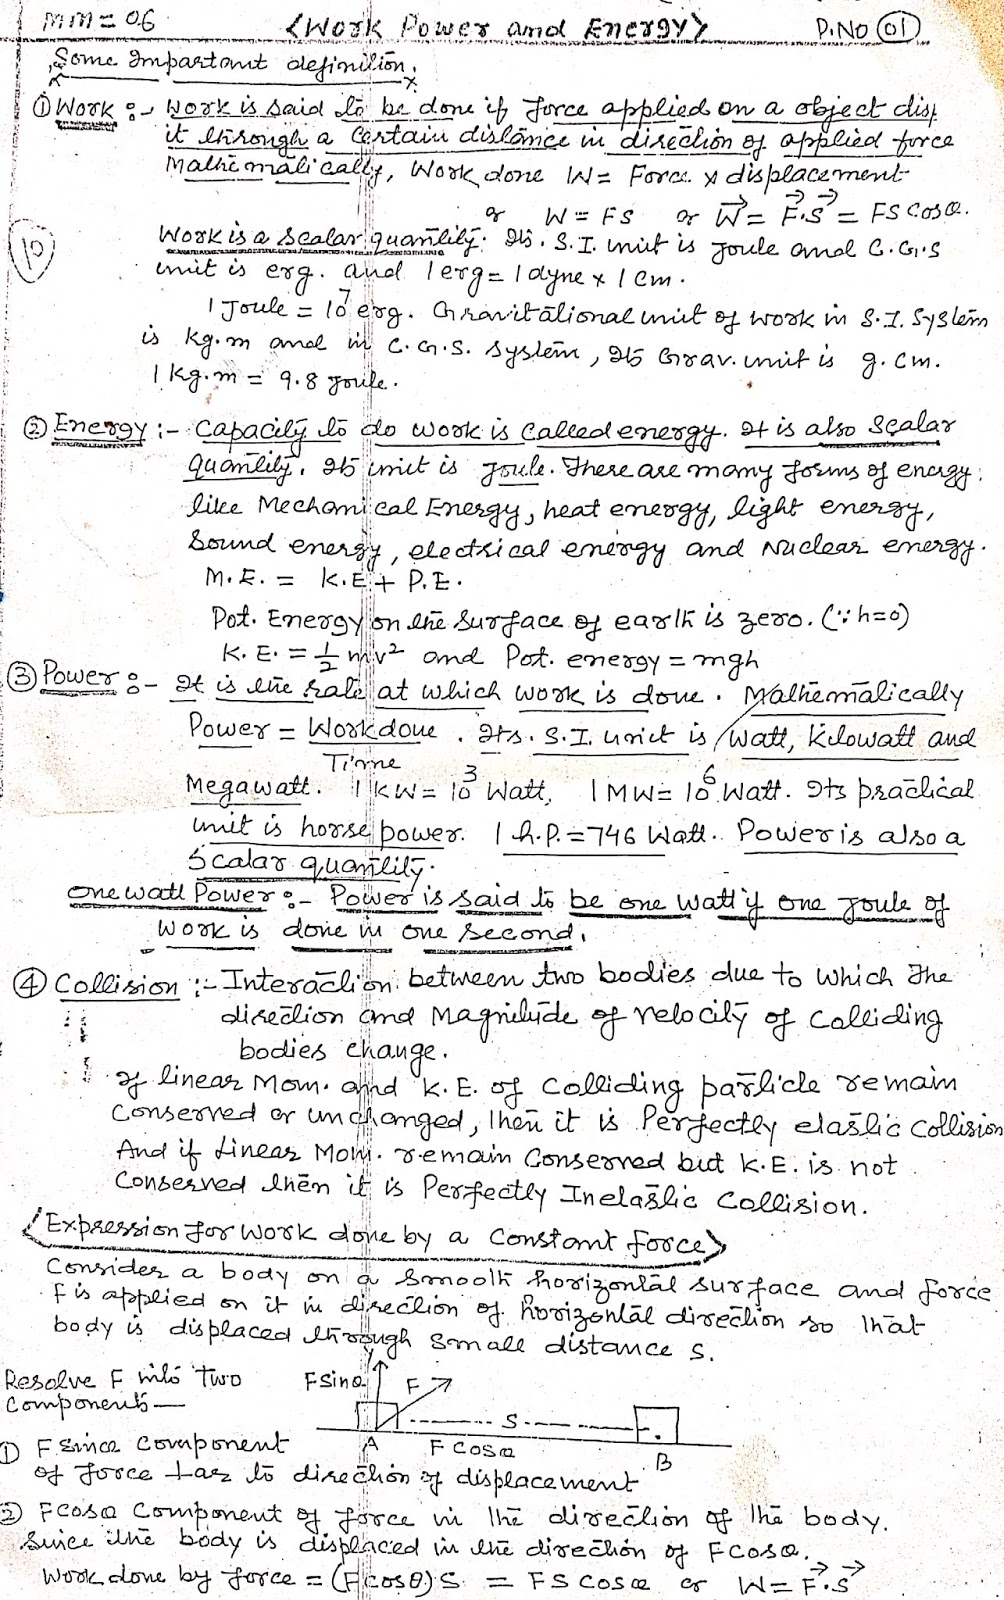 MM = 06 <Work Power and Energy> P.No 01
Some Important definition.
① Work :- Work is said to be done if force applied on a object disp
it through a certain distance in direction of applied force
Mathematically, Work done W = Force x displacement
or W = FS or W⃗ = F⃗.S⃗ = FS Cosθ.
10
Work is a scalar quantity. Its. S.I. unit is Joule and C.G.S
unit is erg. and 1 erg = 1 dyne x 1 cm.
1 Joule = 10⁷ erg. Gravitational unit of work in S.I. System
is kg.m and in C.G.S. System, its Grav. unit is g.cm.
1 kg.m = 9.8 Joule.
② Energy :- Capacity to do work is called energy. It is also Scalar
quantity. Its unit is Joule. There are many forms of energy
like Mechanical Energy, heat energy, light energy,
Sound energy, electrical energy and Nuclear energy.
M.E. = K.E + P.E.
Pot. Energy on the Surface of earth is zero. (∵ h=0)
K.E. = 1/2 mv² and Pot. energy = mgh
③ Power :- It is the rate at which work is done. Mathematically
Power = Work done / Time . Its. S.I. unit is Watt, Kilowatt and
Megawatt. 1 KW = 10³ Watt, 1 MW = 10⁶ Watt. Its practical
unit is horse power. 1 h.P. = 746 Watt. Power is also a
Scalar quantity.
One watt Power :- Power is said to be one watt if one joule of
work is done in one second.
④ Collision :- Interaction between two bodies due to which the
direction and Magnitude of velocity of Colliding
bodies change.
If linear Mom. and K.E. of Colliding particle remain
Conserved or unchanged, then it is Perfectly elastic Collision
And if Linear Mom. remain Conserved but K.E. is not
Conserved then it is Perfectly Inelastic Collision.
<Expression for work done by a Constant force>
Consider a body on a smooth horizontal surface and force
F is applied on it in direction of horizontal direction so that
body is displaced through small distance S.
Resolve F into Two
Components—
F Sinθ F
S
A F COSθ B
① F sinθ component
of force ⊥ar to direction of displacement
② F cosθ Component of force in the direction of the body.
Since the body is displaced in the direction of F cosθ.
Work done by force = (F cosθ) S = FS cosθ or W = F⃗.S⃗